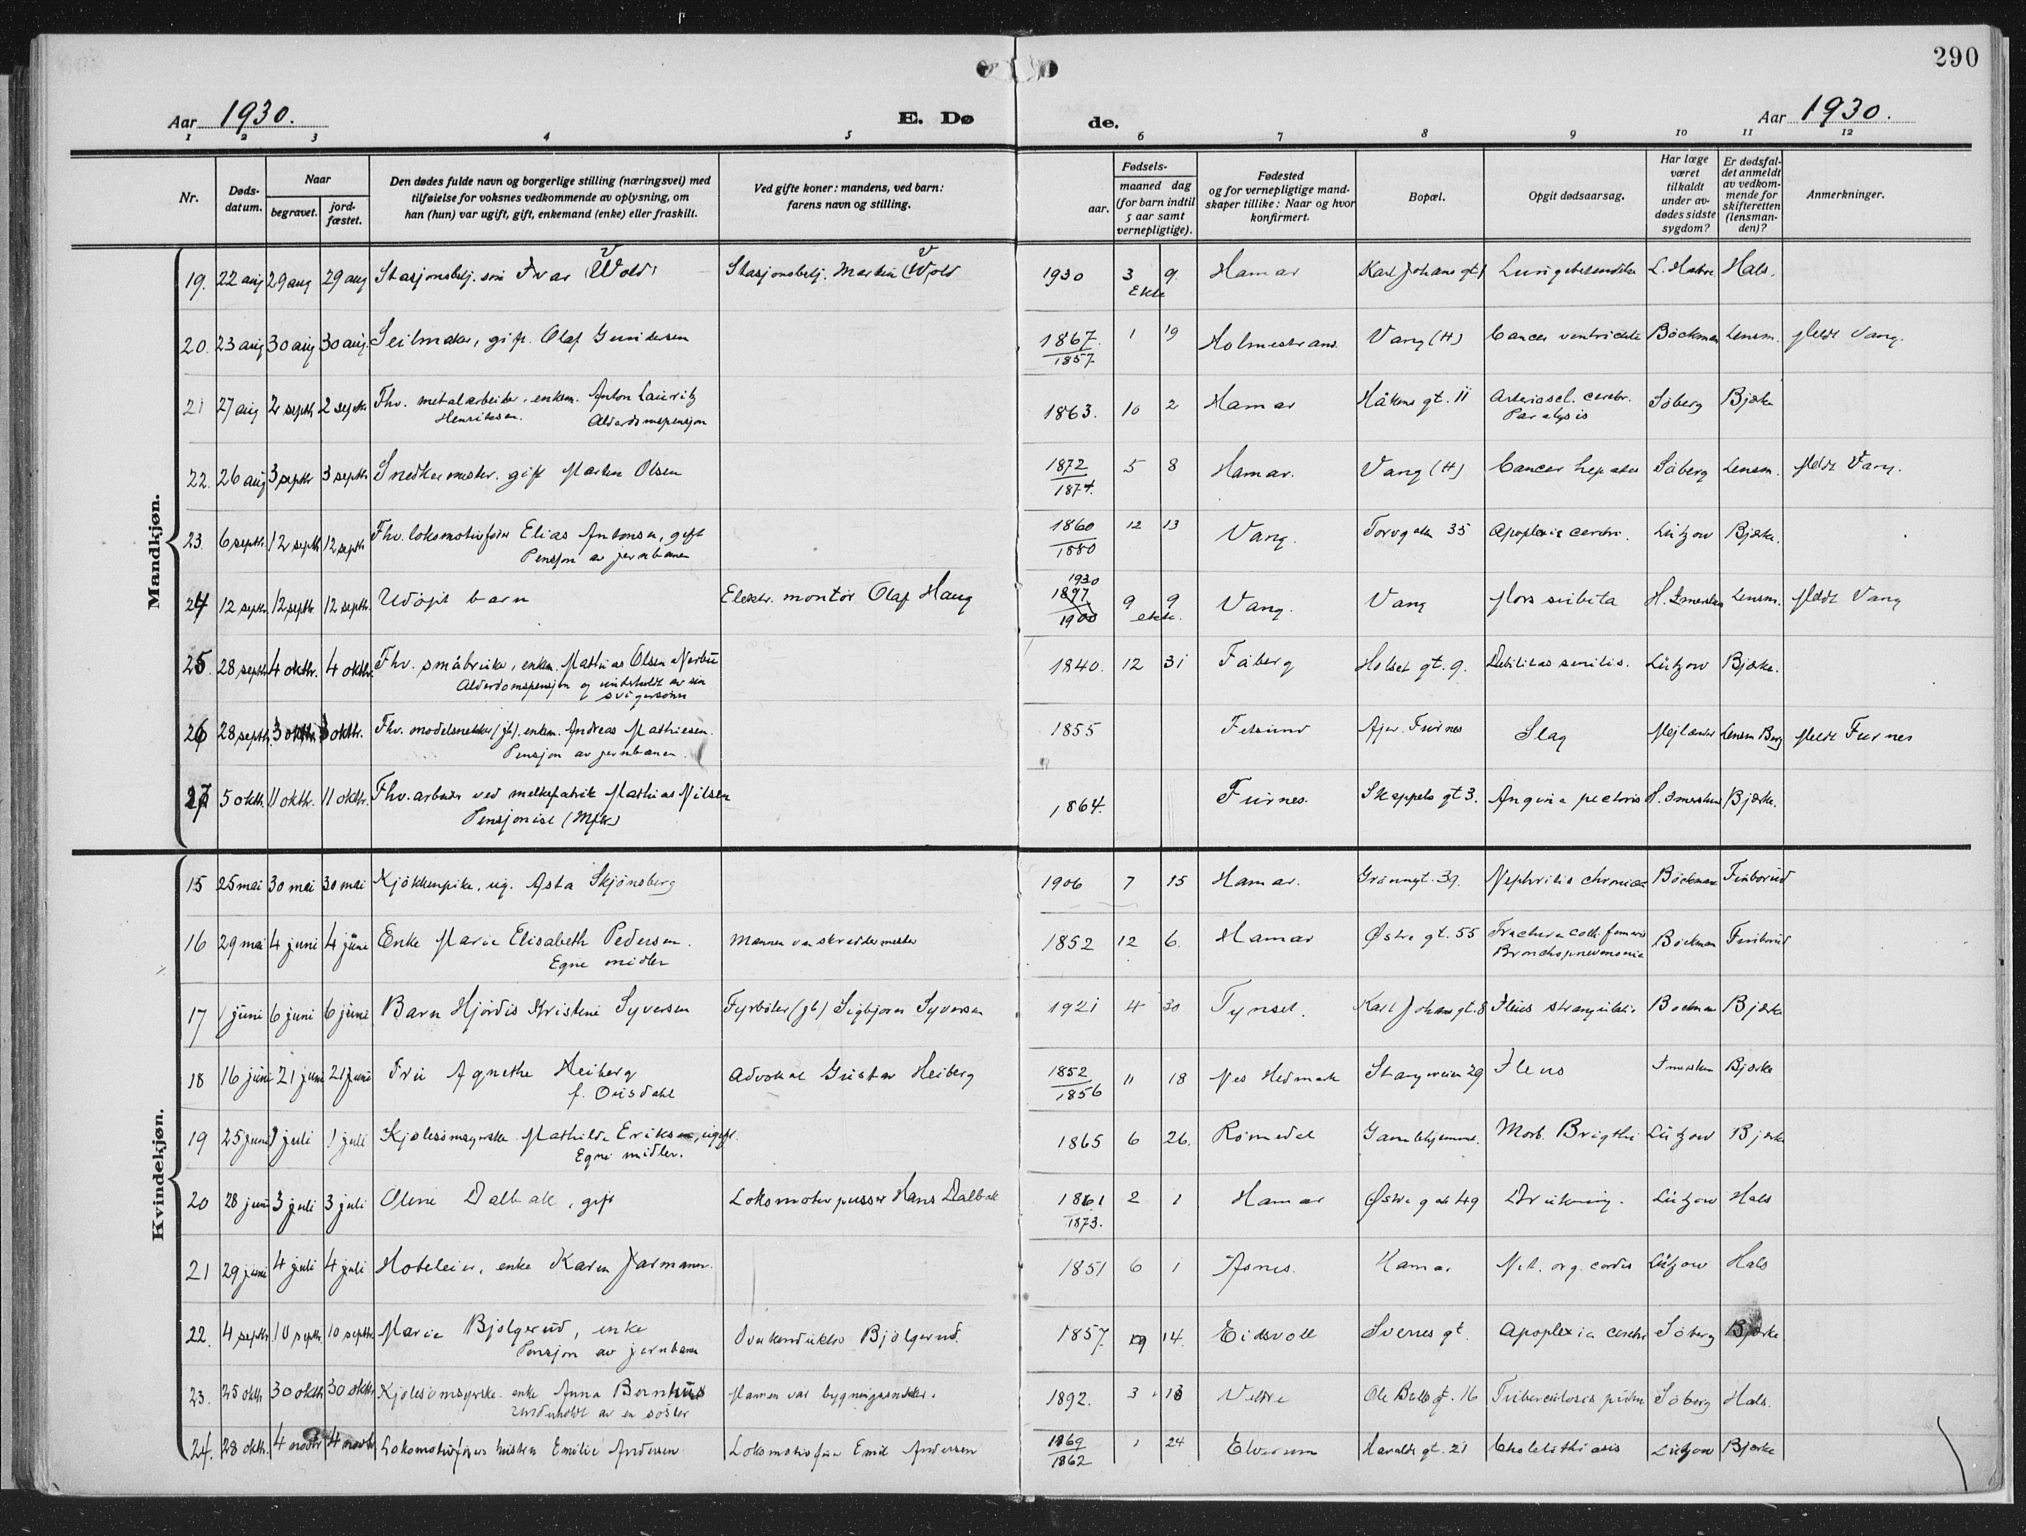 290
Aar 1930.
E. Dø
de.
Aar 1930.
1 2 3 4 5 6 7 8 9 10 11 12
Nr.
Døds-
datum.
Naar
begravet.
jord-
fæstet.
Den dødes fulde navn og borgerlige stilling (næringsvei) med
tilføielse for voksnes vedkommende av oplysning, om
han (hun) var ugift, gift, enkemand (enke) eller fraskilt.
Ved gifte koner: mandens, ved barn:
farens navn og stilling.
Fødsels-
aar.
maaned dag
(for barn indtil
5 aar samt
vernepligtige).
Fødested
og for vernepligtige mand-
skaper tillike: Naar og hvor
konfirmert.
Bopæl.
Opgit dødsaarsag.
Har læge
været
tilkaldt
under av-
dødes sidste
sygdom?
Er dødsfal-
det anmeldt
av vedkom-
mende for
skifteretten
(lensman-
den)?
Anmerkninger.
Mandkjøn.
19. 22 aug 29 aug 29 aug Stasjonsbetj. søn Ivar Wold Stasjonsbetj. Martin Wold 1930 3 9. Hamar Karl Johans gt. L. Hals.
Ekte
20. 23 aug 30 aug 30 aug. Seilmaker, gift. Olaf Gundersen 1867. 1 19 Holmestrand. Vang (H) Cancer ventriculi Bøckman Lensm. Meldt Vang.
1857.
21 27 aug 2 septbr 2 septbr Fhv. metalarbeider, enkem. Anton Lauritz 1863. 10 2 Hamar Håkons gt. 11 Arterioscl. cerebr. Søberg Bjerke
Henriksen. Alderdomspensjon Paralysis
22. 26 aug 3 septbr 3 septbr Snedkermester, gift Martin Olsen 1872 5 8 Hamar. Vang (H) Cancer hepatis Søberg Lensm. Meldt Vang.
1874.
23. 6 septbr. 12 septbr 12 septbr Fhv. lokomotivfører Elias Antonsen, gift 1860 12 13 Vang. Torvgaten 35 Apoplexia cerebri. Lützow Bjerke.
Pensjon av jernbanen 1880
24 12 septbr. 12 septbr 12 septbr. Udøpt barn Elektr. montør Olaf Haug 1930 9 9 Vang. Vang Mors subita Lensm. Meldt Vang
1897 ekte.
1900
25 28 septbr 4 oktbr. 4 oktbr. Fhv. småbruker, enkem. Mathias Olsen 1840. 12 31 Fåberg Holset gt. 9. Debilitas senilis. Lützow Bjerke.
Alderdomspensjon og underholdt av sin
svigersønn
26 28 septbr. 3 oktbr. 3 oktbr. Fhv. modelsnekker (jb), enkem. Andreas Mathiesen. 1855 Fetsund Ajer Furnes Slag Mejlænder Lensm Berg Meldt Furnes
Pensjon av jernbanen.
27 5 oktbr. 11 oktbr. 11 oktbr. Fhv. arbeider ved melkefabrik Mathias Nilsen 1864. Furnes. Skappels gt 3. Angina pectoris Bjerke.
Pensjonist (Mjlk)
Kvindekjøn.
15 25 mai 30 mai 30 mai Kjøkkenpike, ug. Asta Skjønsberg 1906 7 15 Hamar. Grønnegt. 39. Nephritis chronica Bøckman Finborud
16 29 mai 4 juni 4 juni Enke Marie Elisabeth Pedersen. Mannen var skreddermester 1852 12 6. Hamar Østre gt. 55 Fractura coll. femoris Bøckman Finborud
Egne midler Bronchopneumonia
17 1 juni 6 juni 6 juni Barn Hjördis Kristine Syversen Fyrbøter (jb) Sigbjørn Syversen 1921 4 30 Tynset. Karl Johans gt. 8 Ileus strangulatio Bøckman Bjerke
18 16 juni 21 juni 21 juni Fru Agnethe Heiberg Advokat Gustav Heiberg 1852 11 18 Nes Hedmark Stangeveien 29 Ileus Bjerke
f. Ousdahl 1856
19 25 juni 1 juli 1 juli Kjolesømmerske Mathilde Eriksen, ugift. 1865 6 26. Romedal Gamlehjemmet. Morb. Brigthi Lützow Bjerke
Egne midler.
20 28 juni 3 juli 3 juli Oline Dalbak, gift Lokomotivpusser Hans Dalbak 1861 2 1 Hamar Østre gate 49 Drukning. Lützow Hals
1873.
21 29 juni 4 juli 4 juli Hoteleier, enke Karen Jarmann. 1851 6 1 Åsnes. Hamar Vit. org. cordis Lützow Hals
22. 4 septbr 10 septbr. 10 septbr Marie Bjølgerud, enke Overkonduktør Bjølgerud. 1857. 9 14. Eidsvoll Svenes gt. Apoplexia cerebri Søberg Bjerke
Pensjon av jernbanen
23. 25 oktbr 30 oktbr 30 oktbr Kjolesømmerske enke Anna Bernhus Mannen var bygningssnekker. 1892. 3 13 Ole Bulls gt. 16 Tuberculosis pulm Søberg Hals.
Underholdt av en søster
24. 28 oktbr. 4 novbr 4 novbr Lokomotivførers hustru Emilie Andersen Lokomotivfører Emil Andersen 1869 1 24 Elverum Haralds gt. 21 Cholelithiasis Lützow Bjerke
1862